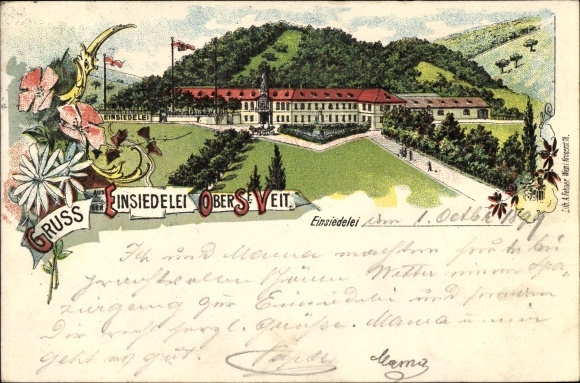 EINSIEDELEI
GRUSS AUS EINSIEDELEI OBER ST VEIT.
Einsiedelei am 1. Octbr. 1897
Ich und Mama machten heute bei
prachtvollen schönen Wetter einen Spa-
ziergang zur Einsiedelei und senden
Dir recht herzl. Grüsse. Mama u mir
geht es gut. Papa
Mama
Lith. A. Relser, Wien